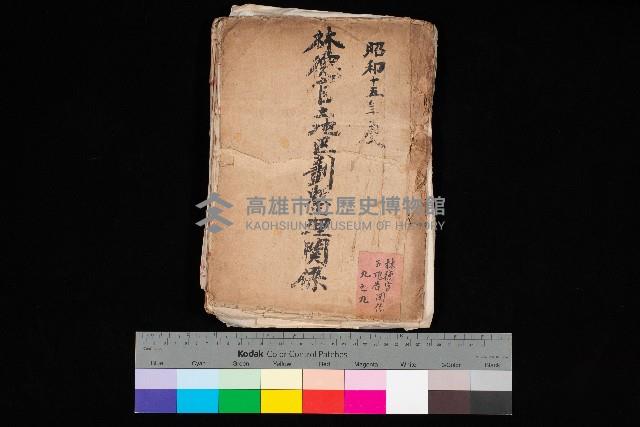 昭和十五年度
林德官土地区劃整理関係
林德官
土地台関係
九七九
高雄市立歷史博物館
KAOHSIUNG MUSEUM OF HISTORY
Kodak Color Control Patches
Blue Cyan Green Yellow Red Magenta White 3/Color Black